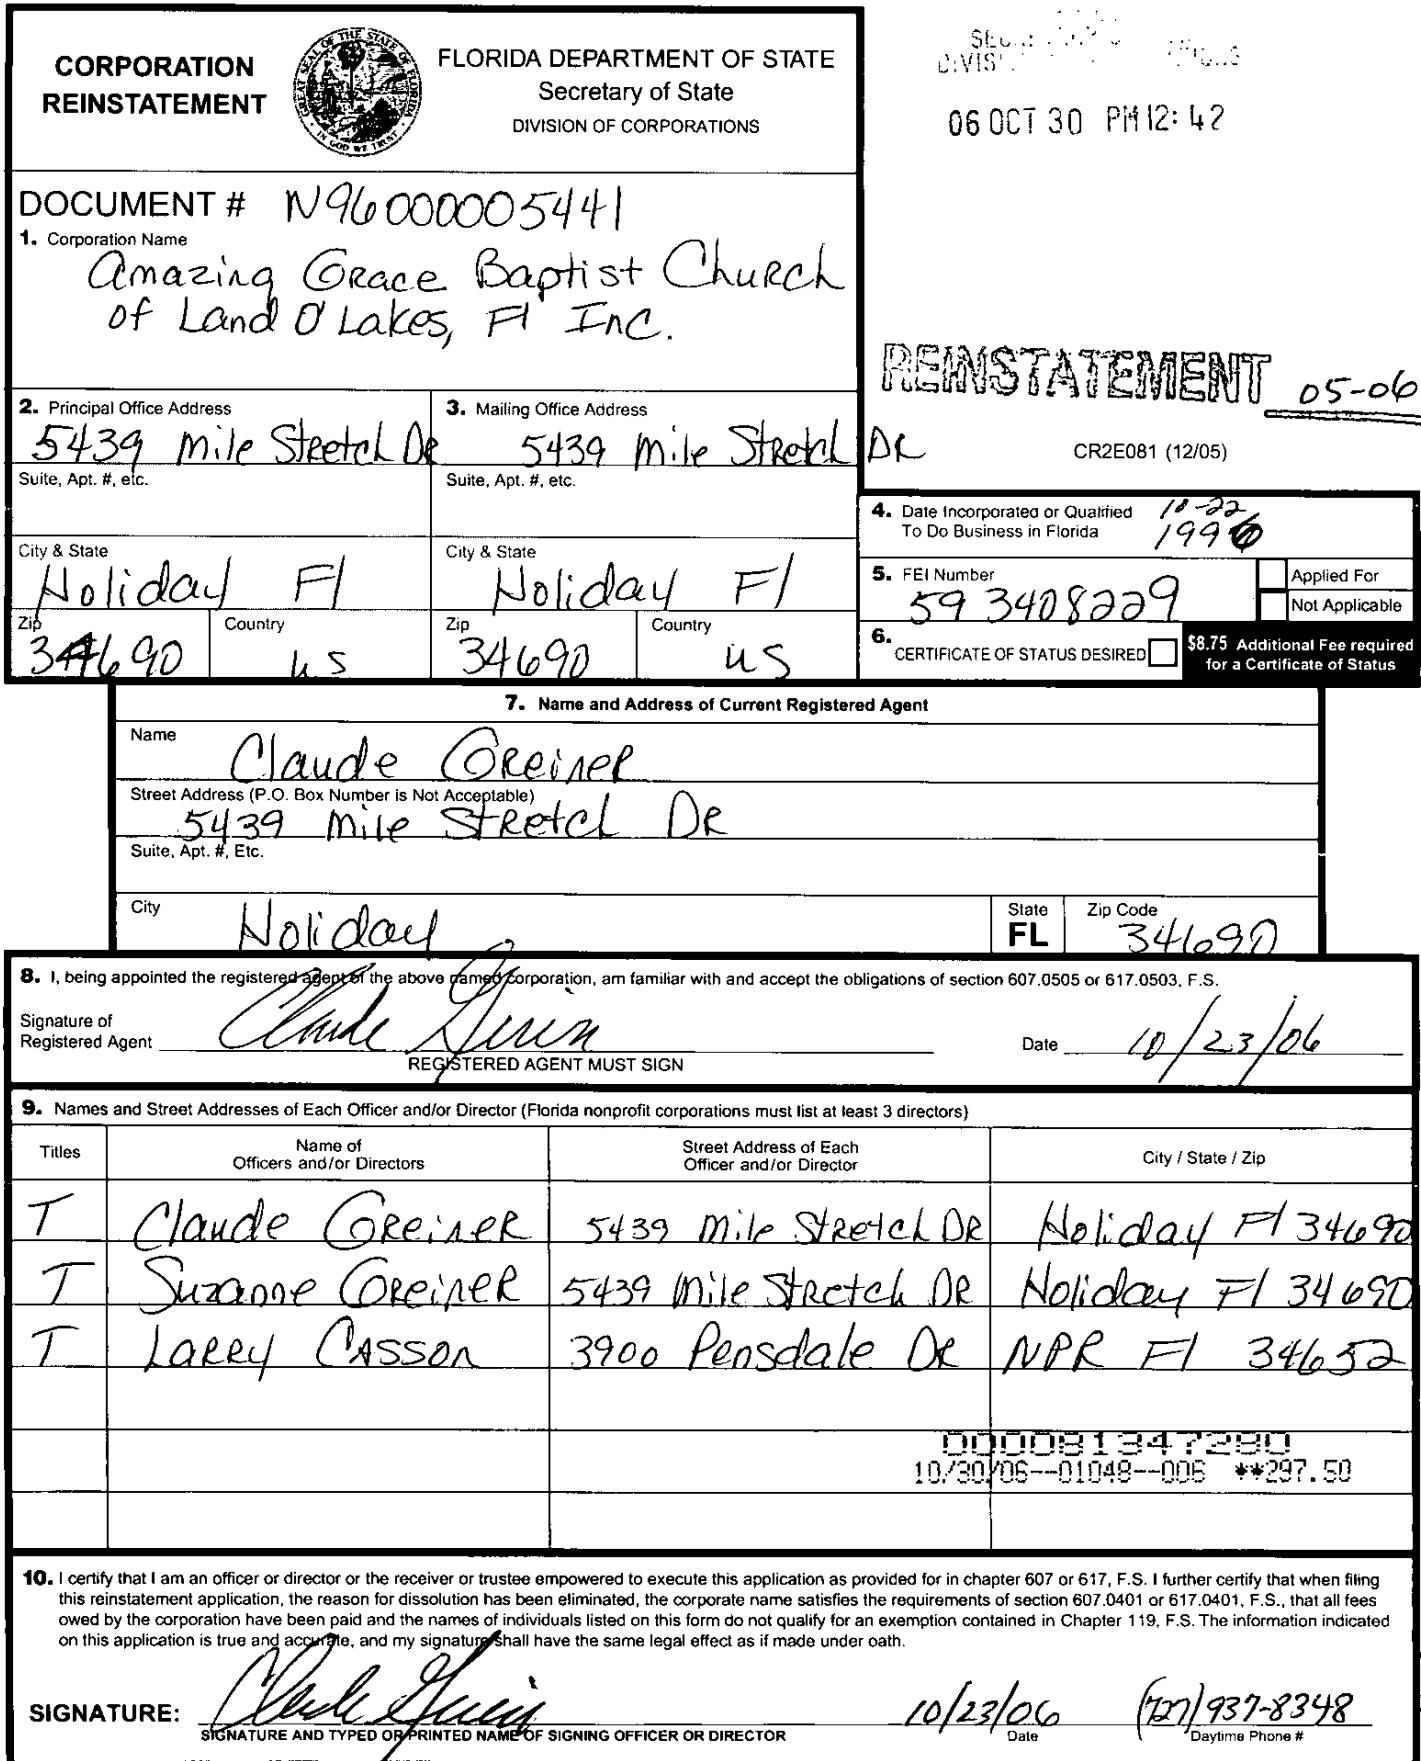 CORPORATION
REINSTATEMENT
FLORIDA DEPARTMENT OF STATE
Secretary of State
DIVISION OF CORPORATIONS
06 OCT 30 PM 12:42
DOCUMENT # N96000005441
1. Corporation Name
Amazing Grace Baptist Church
of Land O'Lakes, Fl Inc.
REINSTATEMENT 05-06
CR2E081 (12/05)
2. Principal Office Address
5439 Mile Stretch DR
3. Mailing Office Address
5439 Mile Stretch DR
Suite, Apt. #, etc.
Suite, Apt. #, etc.
4. Date Incorporated or Qualified
To Do Business in Florida
10-22
1996
City & State
Holiday Fl
City & State
Holiday Fl
5. FEI Number
59 3408229
Applied For
Not Applicable
Zip
34690
Country
US
Zip
34690
Country
US
6. CERTIFICATE OF STATUS DESIRED
$8.75 Additional Fee required
for a Certificate of Status
7. Name and Address of Current Registered Agent
Name
Claude Greiner
Street Address (P.O. Box Number is Not Acceptable)
5439 Mile Stretch DR
Suite, Apt. #, Etc.
City
Holiday
State
FL
Zip Code
34690
8. I, being appointed the registered agent of the above named corporation, am familiar with and accept the obligations of section 607.0505 or 617.0503, F.S.
Signature of
Registered Agent
Claude Greiner
REGISTERED AGENT MUST SIGN
Date 10/23/06
9. Names and Street Addresses of Each Officer and/or Director (Florida nonprofit corporations must list at least 3 directors)
Titles
Name of
Officers and/or Directors
Street Address of Each
Officer and/or Director
City / State / Zip
T Claude Greiner 5439 Mile Stretch DR Holiday Fl 34690
T Suzanne Greiner 5439 Mile Stretch DR Holiday Fl 34690
T Larry Casson 3900 Pensdale DR NPR Fl 34652
000081347280
10/30/06--01048--006 **297.50
10. I certify that I am an officer or director or the receiver or trustee empowered to execute this application as provided for in chapter 607 or 617, F.S. I further certify that when filing
this reinstatement application, the reason for dissolution has been eliminated, the corporate name satisfies the requirements of section 607.0401 or 617.0401, F.S., that all fees
owed by the corporation have been paid and the names of individuals listed on this form do not qualify for an exemption contained in Chapter 119, F.S. The information indicated
on this application is true and accurate, and my signature shall have the same legal effect as if made under oath.
SIGNATURE: Claude Greiner
10/23/06 (727) 937-8348
SIGNATURE AND TYPED OR PRINTED NAME OF SIGNING OFFICER OR DIRECTOR
Date
Daytime Phone #